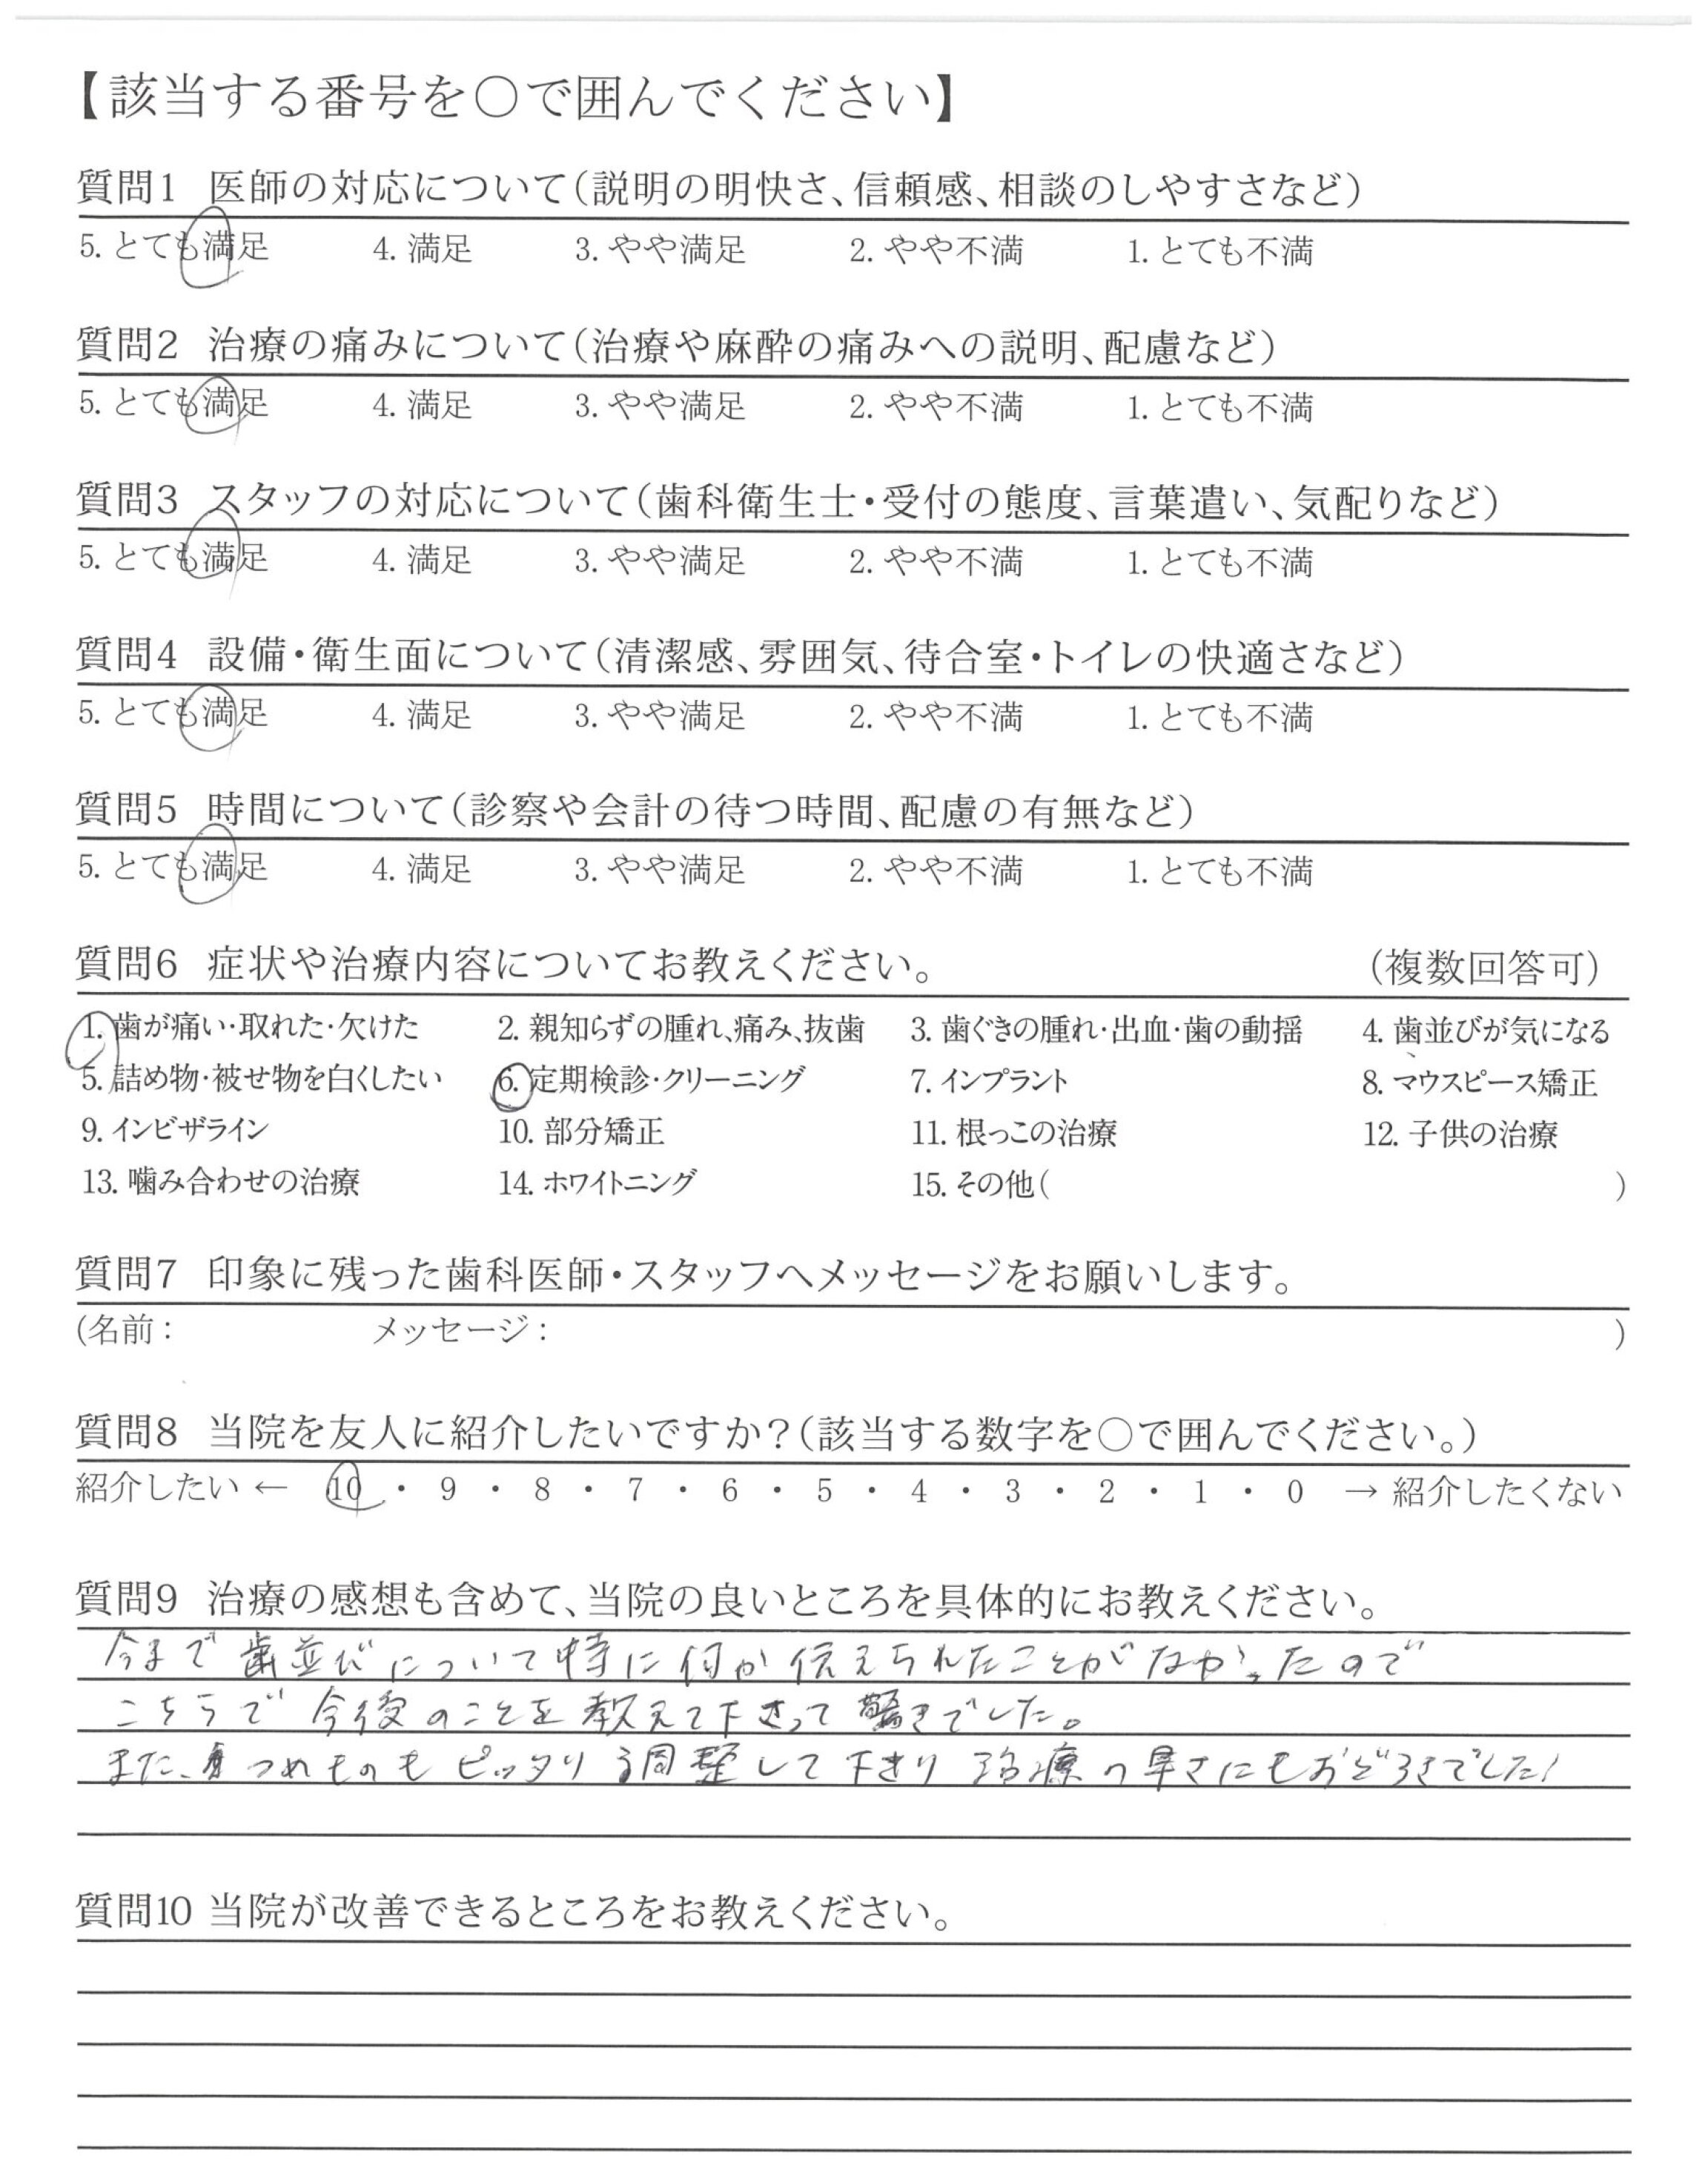 【該当する番号を〇で囲んでください】
質問1 医師の対応について(説明の明快さ、信頼感、相談のしやすさなど)
5. とても満足 4. 満足 3. やや満足 2. やや不満 1. とても不満
質問2 治療の痛みについて(治療や麻酔の痛みへの説明、配慮など)
5. とても満足 4. 満足 3. やや満足 2. やや不満 1. とても不満
質問3 スタッフの対応について(歯科衛生士・受付の態度、言葉遣い、気配りなど)
5. とても満足 4. 満足 3. やや満足 2. やや不満 1. とても不満
質問4 設備・衛生面について(清潔感、雰囲気、待合室・トイレの快適さなど)
5. とても満足 4. 満足 3. やや満足 2. やや不満 1. とても不満
質問5 時間について(診察や会計の待つ時間、配慮の有無など)
5. とても満足 4. 満足 3. やや満足 2. やや不満 1. とても不満
質問6 症状や治療内容についてお教えください。 (複数回答可)
1. 歯が痛い・取れた・欠けた 2. 親知らずの腫れ、痛み、抜歯 3. 歯ぐきの腫れ・出血・歯の動揺 4. 歯並びが気になる
5. 詰め物・被せ物を白くしたい 6. 定期検診・クリーニング 7. インプラント 8. マウスピース矯正
9. インビザライン 10. 部分矯正 11. 根っこの治療 12. 子供の治療
13. 噛み合わせの治療 14. ホワイトニング 15. その他( )
質問7 印象に残った歯科医師・スタッフへメッセージをお願いします。
(名前: メッセージ: )
質問8 当院を友人に紹介したいですか?(該当する数字を〇で囲んでください。)
紹介したい ← 10 ・ 9 ・ 8 ・ 7 ・ 6 ・ 5 ・ 4 ・ 3 ・ 2 ・ 1 ・ 0 → 紹介したくない
質問9 治療の感想も含めて、当院の良いところを具体的にお教えください。
今まで歯並びについて特に何か伝えられたことがなかったので
こちらで今後のことを教えて下さって驚きでした。
また、つめものもピッタリ調整して下さり治療の早さにもおどろきでした!
質問10 当院が改善できるところをお教えください。